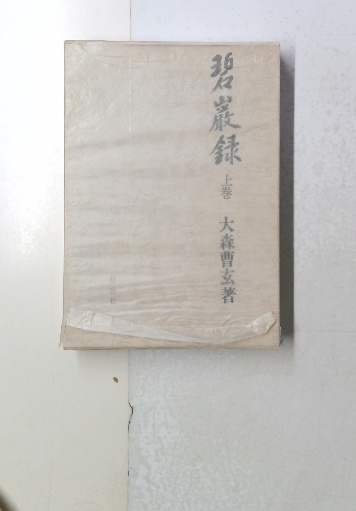 碧巌録
上巻
大森曹玄著